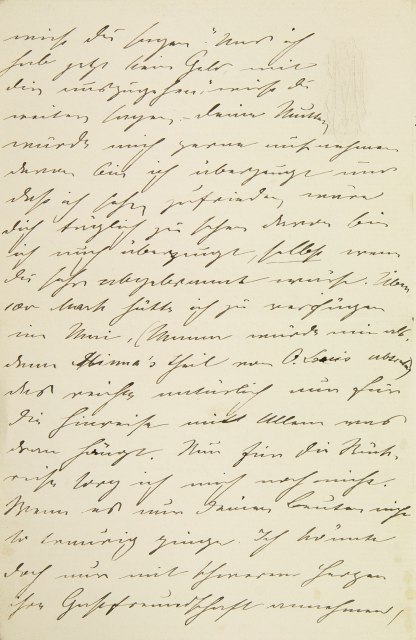 wirst du sagen "Und ich
hab jetzt kein Geld, mit
dir auszugehen", wirst du
weiter sagen. – Deine Mutter
würde mich gerne aufnehmen
davon bin ich überzeugt und
daß ich sehr zufrieden wäre
dich täglich zu sehen davon bin
ich auch überzeugt, selbst wenn
du sehr abgebrannt wärst. Über
100 Mark hätte ich zu verfügen
im Mai, (Mama würde mir als
dann Minna's Theil von O. Louis
das reichte natürlich nur für
die Hinreise mit Allem was
dran hängt. Nun für die Rück
reise sorg ich mich noch nicht.
Wenn es nur Deinen Leuten nicht
so traurig ginge. Ich könnte
doch nur mit schwerem Herzen
ihre Gastfreundschaft annehmen,